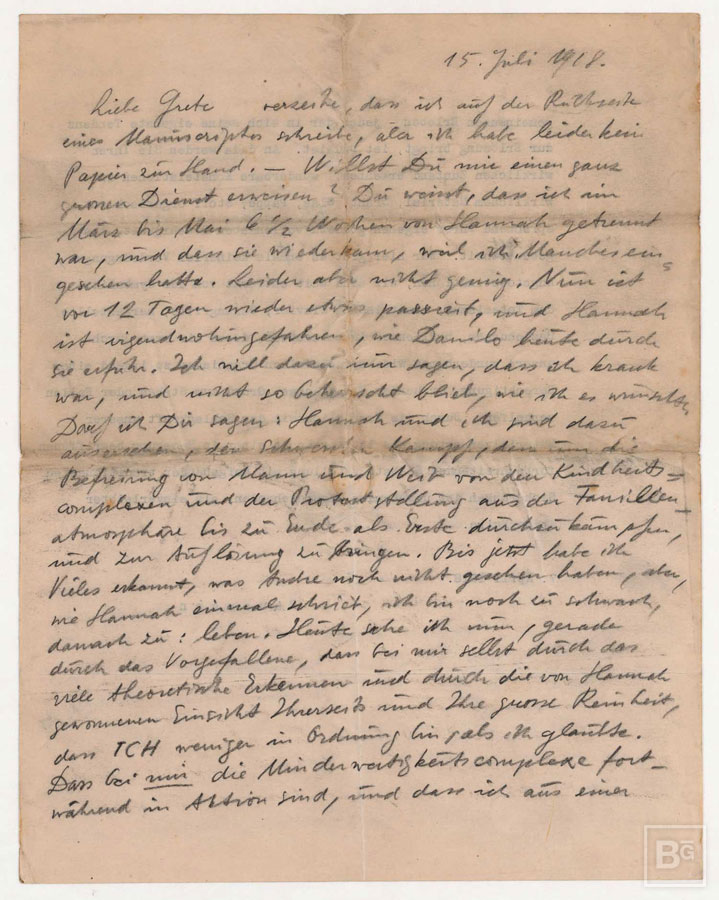 15. Juli 1918.
Liebe Grete verzeihe, dass ich auf der Rückseite
eines Manuscriptes schreibe, aber ich habe leider kein
Papier zur Hand. — Willst Du mir einen ganz
grossen Dienst erweisen? Du weisst, dass ich im
März bis Mai 6 1/2 Wochen von Hannah getrennt
war, und dass sie wiederkam, weil ich Manches ein=
gesehen hatte. Leider aber nicht genug. Nun ist
vor 12 Tagen wieder etwas passiert, und Hannah
ist irgendwohingefahren, wie Danilo heute durch
sie erfuhr. Ich will dazu nur sagen, dass ich krank
war, und nicht so beherrscht blieb, wie ich es wünschte.
Darf ich Dir sagen: Hannah und ich sind dazu
ausersehen, den schwersten Kampf, den um die
Befreiung von Mann und Weib von den Kindheits=
complexen und der Protest aus der Familien=
atmosphäre bis zu Ende als Erste durchzukämpfen,
und zur Auflösung zu bringen. Bis jetzt habe ich
Vieles erkannt, was Andre noch nicht gesehen haben, aber,
wie Hannah einmal schrieb, ich bin noch zu schwach,
danach zu: leben. Heute sehe ich nun, gerade
durch das Vorgefallene, dass bei mir selbst durch das
viele theoretische Erkennen und durch die von Hannah
gewonnenen Einsicht Ihrerseits und Ihre grosse Reinheit,
dass ICH weniger in Ordnung bin, als ich glaubte.
Dass bei mir die Minderwertigkeitscomplexe fort=
während in Aktion sind, und dass ich aus einer
BG